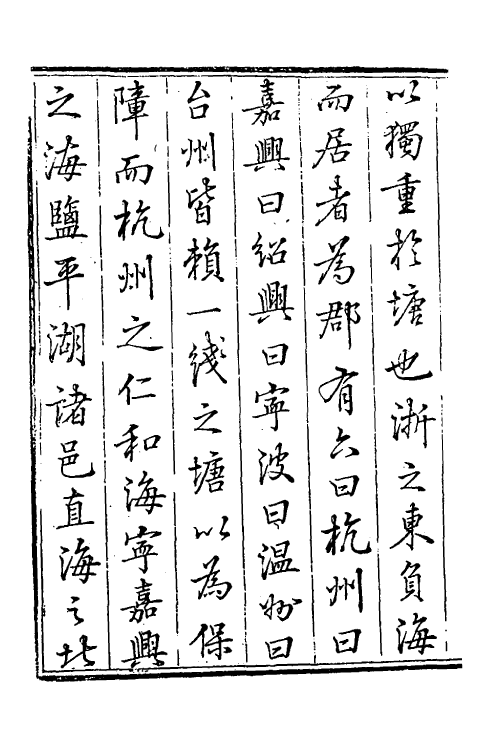 以獨重於塘也浙之東負海
而居者為郡有六曰杭州曰
嘉興曰紹興曰寧波曰温州曰
台州皆賴一綫之塘以為保
障而杭州之仁和海寧嘉興
之海鹽平湖諸邑直海之北